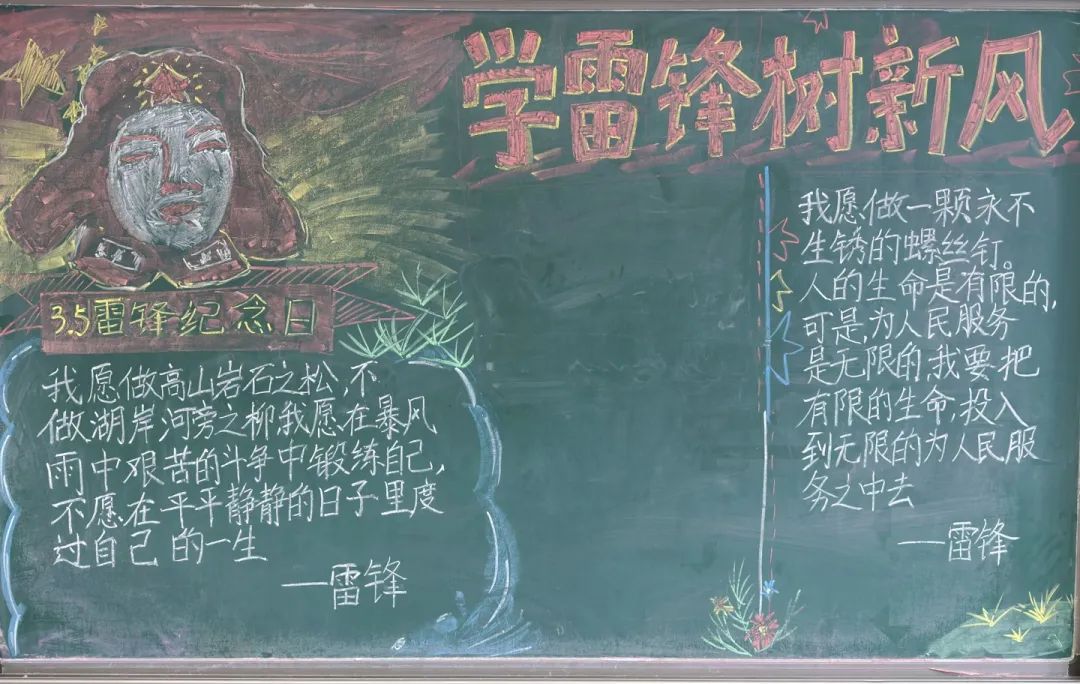 学雷锋树新风
3.5雷锋纪念日
我愿做高山岩石之松,不
做湖岸河旁之柳我愿在暴风
雨中艰苦的斗争中锻练自己,
不愿在平平静静的日子里度
过自己的一生
—雷锋
我愿做一颗永不
生锈的螺丝钉。
人的生命是有限的,
可是,为人民服务
是无限的,我要把
有限的生命,投入
到无限的为人民服
务之中去
—雷锋